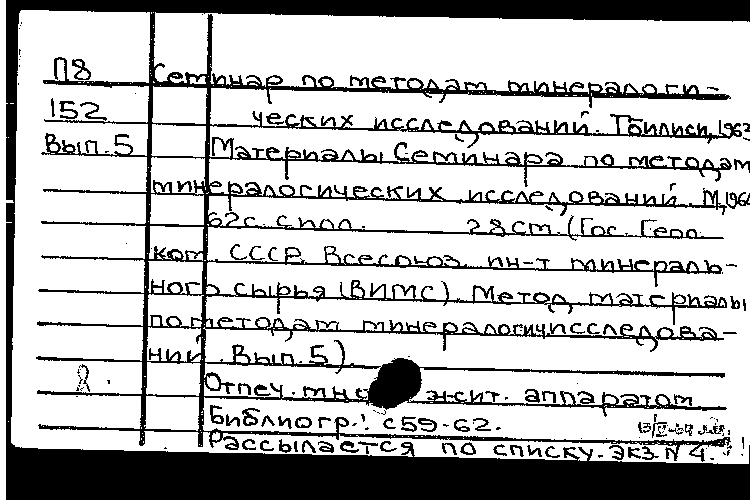 П8 Семинар по методам минералоги-
152 ческих исследований. Тбилиси, 1963
Вып. 5 Материалы Семинара по методам
минералогических исследований. М, 196
62с. с пол. 28 см. (Гос. Геол.
ком. СССР. Всесоюз. ин-т минераль-
ного сырья (ВИМС). Метод. материалы
по методам минералогич исследова-
ний. Вып. 5).
Отпеч. аппаратом
Библиогр.: с 59-62.
Рассылается по списку. экз. N 4.